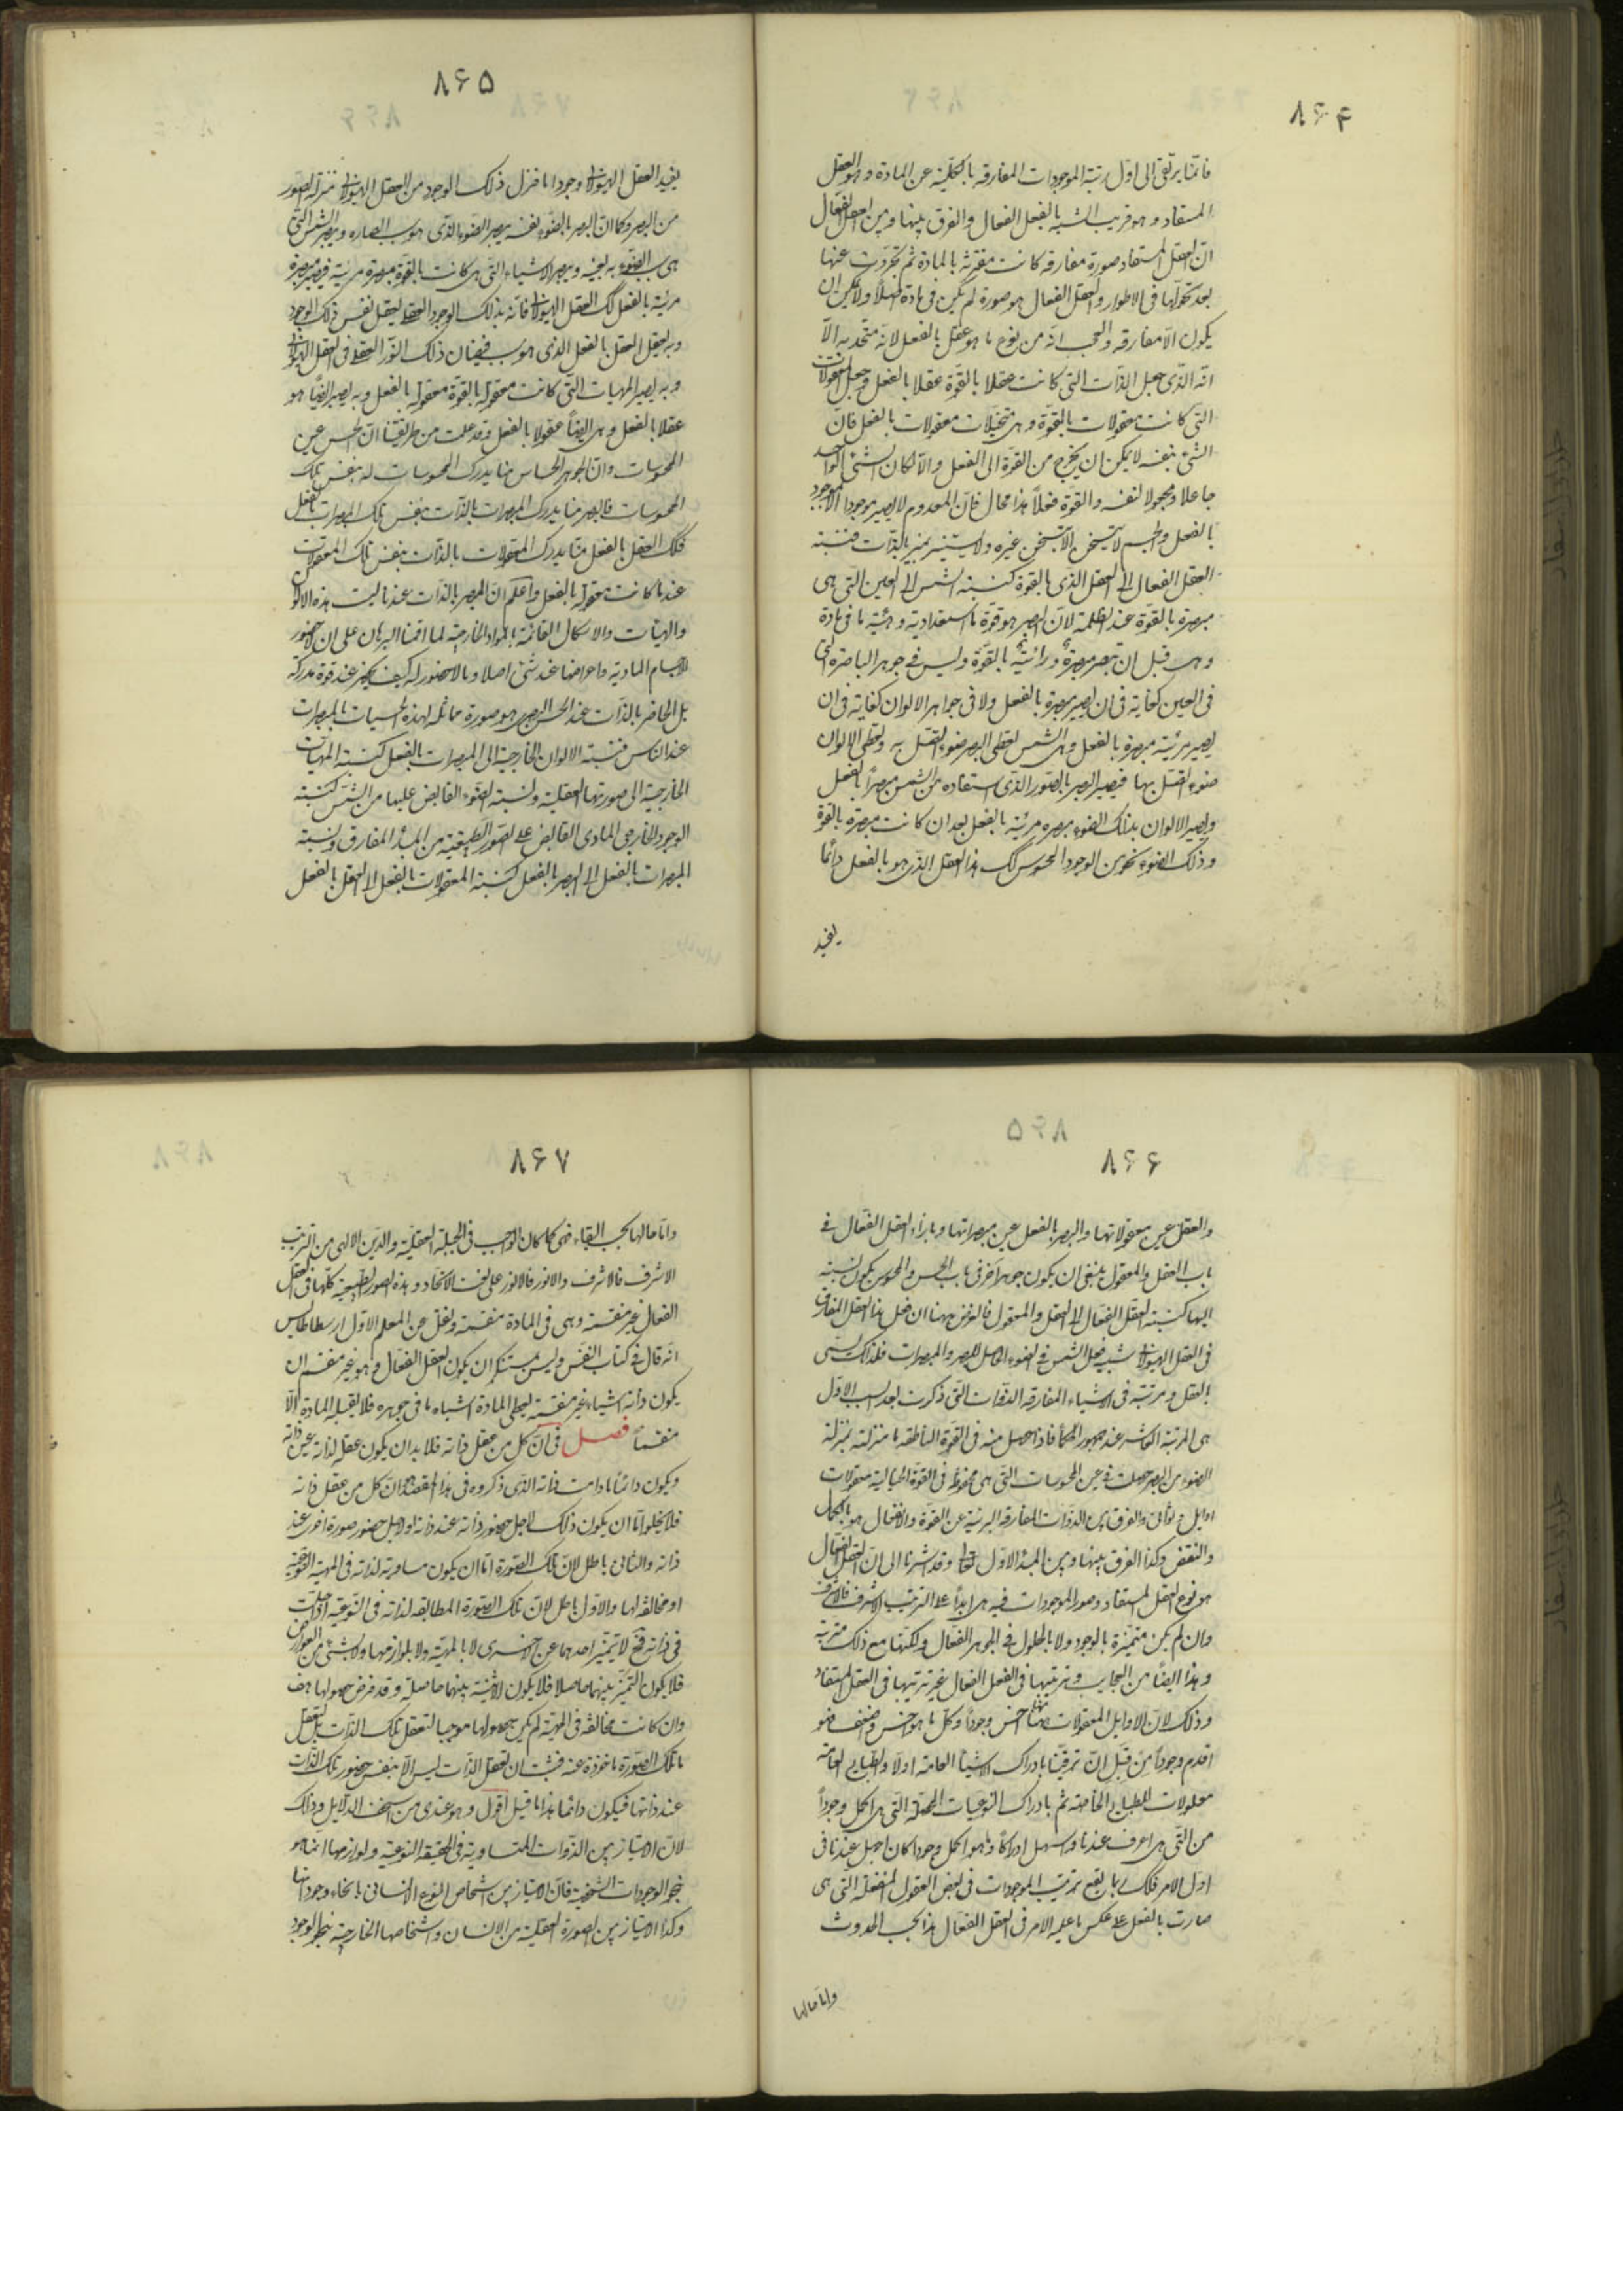 ۸۶۴
فانما يرتقى الى اول رتبة الموجودات المفارقه بالكلية عن المادة و هو العقل
المستفاد و هو قريب الشبه بالفعل الفعال والفرق بينها وبين العقل الفعال
ان العقل المستفاد صورة مفارقه كانت مقترنة بالمادة ثم تجردت عنها
بعد تحولها فى الاطوار والعقل الفعال هو صورة لم تكن فى مادة اصلا ولا يمكن ان
يكون الا مفارقه والعجب انه من نوع ما هو عقل بالفعل لانه متحد به الا
انه الذى جعل الذات التى كانت عقلا بالقوة عقلا بالفعل وجعل المعقولات
التى كانت معقولات بالقوة و هى متخيلات معقولات بالفعل فان
الشئ بنفسه لا يمكن ان يخرج من القوة الى الفعل والا لكان الشئ الواحد
جاعلا ومجعولا لنفسه والقوة فعلا هذا محال فان المعدوم لا يصير موجودا الا بموجود
بالفعل والجسم لا يتسخن الا بمسخن غيره ولا يستنير بمنير بالذات فنسبة
العقل الفعال الى العقل الذى بالقوة كنسبة الشمس الى العين التى هى
مبصرة بالقوة عند الظلمة لان البصر هو قوة ما استعدادية وهيئة ما فى مادة
و هى قبل ان تبصر مبصرة ورائية بالقوة وليس فى جوهر الباصرة التى
فى العين كفاية فى ان يصير مبصرة بالفعل ولا فى جواهر الالوان كفاية فى ان
يصير مرئية مبصرة بالفعل وهى الشمس تعطى البصر ضوء اتصل به وتعطى الالوان
ضوء اتصل بها فيصير البصر بالضوء الذى استفاده من الشمس مبصرا بالفعل
ويصير الالوان بذلك الضوء مبصره مرئية بالفعل بعد ان كانت مبصرة بالقوة
وذلك الضوء نحو من الوجود المحسوس كك هذا العقل الذى هو بالفعل دائما
يفيد
۸۶۵
يفيد العقل الهيولانى وجودا ما فنزل ذلك الوجود من العقل الهيولانى منزلة الضوء
من البصر وكما ان البصر بالضوء نفسه يبصر الضوء الذى هو سبب ابصاره ويبصر الشمس التى
هى سبب الضوء به بعينه ويبصر الاشياء التى هى كانت بالقوة مبصرة مرئية فيصير مبصرة
مرئية بالفعل كك العقل الهيولانى فانه بذلك الوجود العقلى يعقل نفس ذلك الوجود
وبه يعقل العقل بالفعل الذى هو سبب فيضان ذلك النور العقلى فى العقل الهيولانى
وبه يصير المهيات التى كانت معقولة بالقوة معقولة بالفعل وبه يصير ايضا هو
عقلا بالفعل و هى ايضا معقولا بالفعل وقد علمت من طريقتنا ان الحس عين
المحسوسات وان الجوهر الحساس منا يدرك المحسوسات له بنفس تلك
المحسوسات فالبصر منا يدرك المبصرات بالذات بنفس تلك المبصرات بالفعل
فكك العقل بالفعل منا يدرك المعقولات بالذات بنفس تلك المعقولات
عندما كانت معقولة بالفعل واعلم ان المبصر بالذات عندنا ليست هذه الالوان
والهيئات والاشكال القائمة بالمواد الخارجية لما اقمنا البرهان على ان لا حضور
للاجسام الماديه واعراضها عند شئ اصلا وما لا حضور له كيف يحضر عند قوة مدركة
بل الحاضر بالذات عند الحس البصرى هو صورة مماثلة لهذه المسميات بالمبصرات
عند الناس فنسبة الالوان الخارجية الى المبصرات بالفعل كنسبة المهيات
الخارجية الى صورتها العقلية ونسبة الضوء الفايض عليها من الشمس كنسبة
الوجود الخارجى المادى الفايض على الصور الطبيعية من المبدأ المفارق ونسبة
المبصرات بالفعل الى البصر بالفعل كنسبة المعقولات بالفعل الى العقل بالفعل
۸۶۶
والعقل عين معقولاتها والبصر بالفعل عين مبصراتها وبازاء العقل الفعال فى
باب العقل والمعقول ينبغى ان يكون جوهر آخر فى باب الحس والمحسوس يكون نسبته
اليها كنسبة العقل الفعال الى العقل والمعقول فالغرض ههنا ان فعل هذا العقل المفارق
فى العقل الهيولانى شبيه فعل الشمس فى الضوء الحاصل للبصر والمبصرات فلذلك يسمى
بالعقل ومرتبته فى الاشياء المفارقه الذوات التى ذكرت بعد السبب الاول
هى المرتبة العاشرة عند جمهور الحكماء فاذا حصل منه فى القوة الناطقه ما منزلته بمنزلة
الضوء من البصر حصلت فى عين المحسوسات التى هى محفوظة فى القوة الخيالية معقولات
اوايل وثوانى والفرق بين الذوات المفارقه البرئية عن القوة والانفعال هو بالكمال
والنقص وكذا الفرق بينها وبين المبدأ الاول تعالى وقد اشرنا الى ان العقل الفعال
هو نوع العقل المستفاد وصور الموجودات فيه هى ابدا على الترتيب الاشرف فالاشرف
وان لم يكن متميزة بالوجود ولا بالحلول فى الجوهر الفعال ولكنها مع ذلك مترتبة
وهذا ايضا من العجايب وترتيبها فى العقل الفعال غير ترتيبها فى العقل المستفاد
وذلك لان الاوايل المعقولات ههنا اخس وجودا وكل ما هو اخس واضعف فهو
اقدم وجودا من قبل ان ترقينا بادراك الاشياء العامة اولا والطبايع العامة
معلولات للطبايع الخاصة ثم بادراك النوعيات المحصلة التى هى اكمل وجودا
من التى هى اعرف عندنا واسهل ادراكا وما هو اكمل وجودا كان اجهل عندنا فى
اول الامر فلذلك ربما يقع ترتيب الموجودات فى بعض العقول المنفعلة التى هى
صارت بالفعل على عكس ما عليه الامر فى العقل الفعال هذا بحسب الحدوث
واما حالها
۸۶۷
واما حالها بحسب البقاء فهى كما كان الواجب فى الجبلة العقلية والدين الالهى من الترتيب
الاشرف فالاشرف والانور فالانور على نعت الاتحاد وهذه الصور الطبيعية كلها فى العقل
الفعال غير منقسمة وهى فى المادة منقسمة ونقل عن المعلم الاول ارسطاطاليس
انه قال فى كتاب النفس وليس بمستنكر ان يكون العقل الفعال وهو غير منقسم ان
يكون ذاته اشياء غير منقسمة يعطى المادة اشباه ما فى جوهره فلا يقبله المادة الا
منقسما فصل فى ان كل من عقل ذاته فلا بد ان يكون عقله لذاته عين ذاته
ويكون دائما مادامت ذاته الذى ذكروه فى هذا المقصد هو ان كل من عقل ذاته
فلا يخلو اما ان يكون ذلك لاجل حضور ذاته عند ذاته او لاجل حضور صورة اخرى عند
ذاته والثانى باطل لان تلك الصورة اما ان يكون مساوية لذاته فى المهية النوعية
او مخالفة لها والاول باطل لان تلك الصورة المطابقه لذاته فى النوعية اذا حلت
فى ذاته فح لا يتميز احدهما عن الاخرى لا بالمهية ولا بلوازمها ولا بشئ من العوارض
فلا يكون التميز بينهما حاصلا فلا يكون الاثنينية بينهما حاصلة وقد فرض حصولها هف
وان كانت مخالفة فى المهية لم يكن حصولها موجبا لتعقل تلك الذات بل لتعقل
ما تلك الصورة ماخوذة عنه فثبت ان تعقل الذات ليس الا بنفس حضور تلك الذات
عند ذاتها فيكون دائما هذا ما قيل اقول وهو عندى من اسخف الدلايل وذلك
لان الامتياز بين الذوات المتساوية فى الحقيقة النوعية ولوازمها انما هو
بنحو الوجودات الشخصية فان الامتياز بين اشخاص النوع الانسانى بانحاء وجوداتها
وكذا الامتياز بين الصورة العقلية من الانسان واشخاصها الخارجية بنحو الوجود